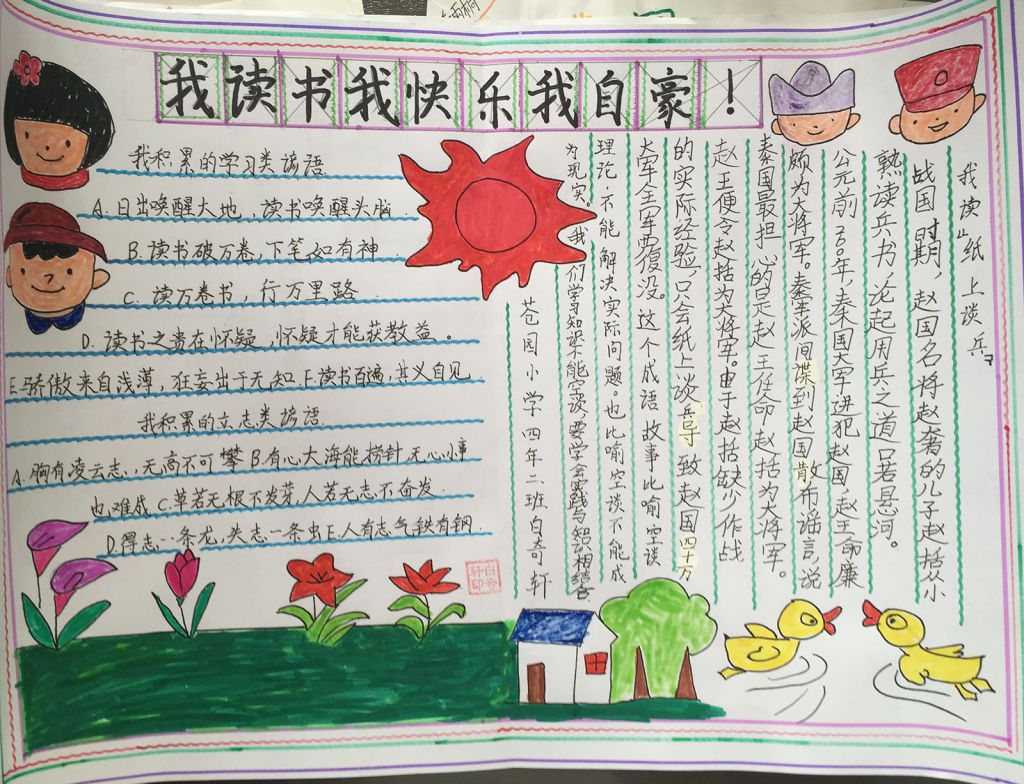 我读书我快乐我自豪！
我积累的学习类谚语
A.日出唤醒大地，读书唤醒头脑
B.读书破万卷，下笔如有神
C.读万卷书，行万里路
D.读书之贵在怀疑，怀疑才能获教益。
E.骄傲来自浅薄，狂妄出于无知.F.读书百遍，其义自见
我积累的立志类谚语.
A.胸有凌云志，无高不可攀B.有心大海能捞针，无心小事
也难成C.草若无根不发芽，人若无志不奋发.
D.得志一条龙，失志一条虫E.人有志气铁有钢.
我读“纸上谈兵”
战国时期，赵国名将赵奢的儿子赵括从小
熟读兵书，论起用兵之道口若悬河。
公元前260年，秦国大军进犯赵国，赵王命廉
颇为大将军。秦军派间谍到赵国散布谣言，说
秦国最担心的是赵王任命赵括为大将军。
赵王便令赵括为大将军。由于赵括缺少作战
的实际经验，只会纸上谈兵导致赵国四十万
大军全军覆没。这个成语故事比喻空谈
理论，不能解决实际问题。也比喻空谈不能成
为现实。我们学习知识不能空谈，要学会实践与知识相结合
苍园小学四年二班白奇轩